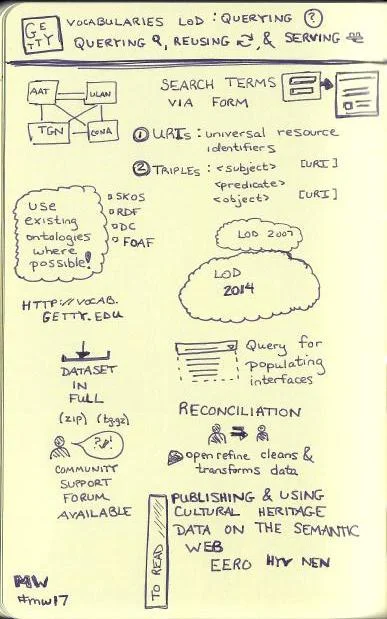 GETTY VOCABULARIES LOD : QUERYING ?
QUERYING, REUSING, & SERVING
AAT
ULAN
TGN
CONA
SEARCH TERMS
VIA FORM
① URIs : universal resource
identifiers
② TRIPLES : <subject> [URI]
<predicate>
<object> [URI]
Use
existing
ontologies
where
possible!
SKOS
RDF
DC
FOAF
LOD 2007
LOD
2014
HTTP://VOCAB.
GETTY.EDU
DATASET
IN
FULL
(zip) (tg.gz)
?,!
COMMUNITY
SUPPORT
FORUM
AVAILABLE
Query for
populating
interfaces
RECONCILIATION
open refine cleans &
transforms data
TO READ
PUBLISHING & USING
CULTURAL HERITAGE
DATA ON THE SEMANTIC
WEB
EERO HYV NEN
MW
#mw17